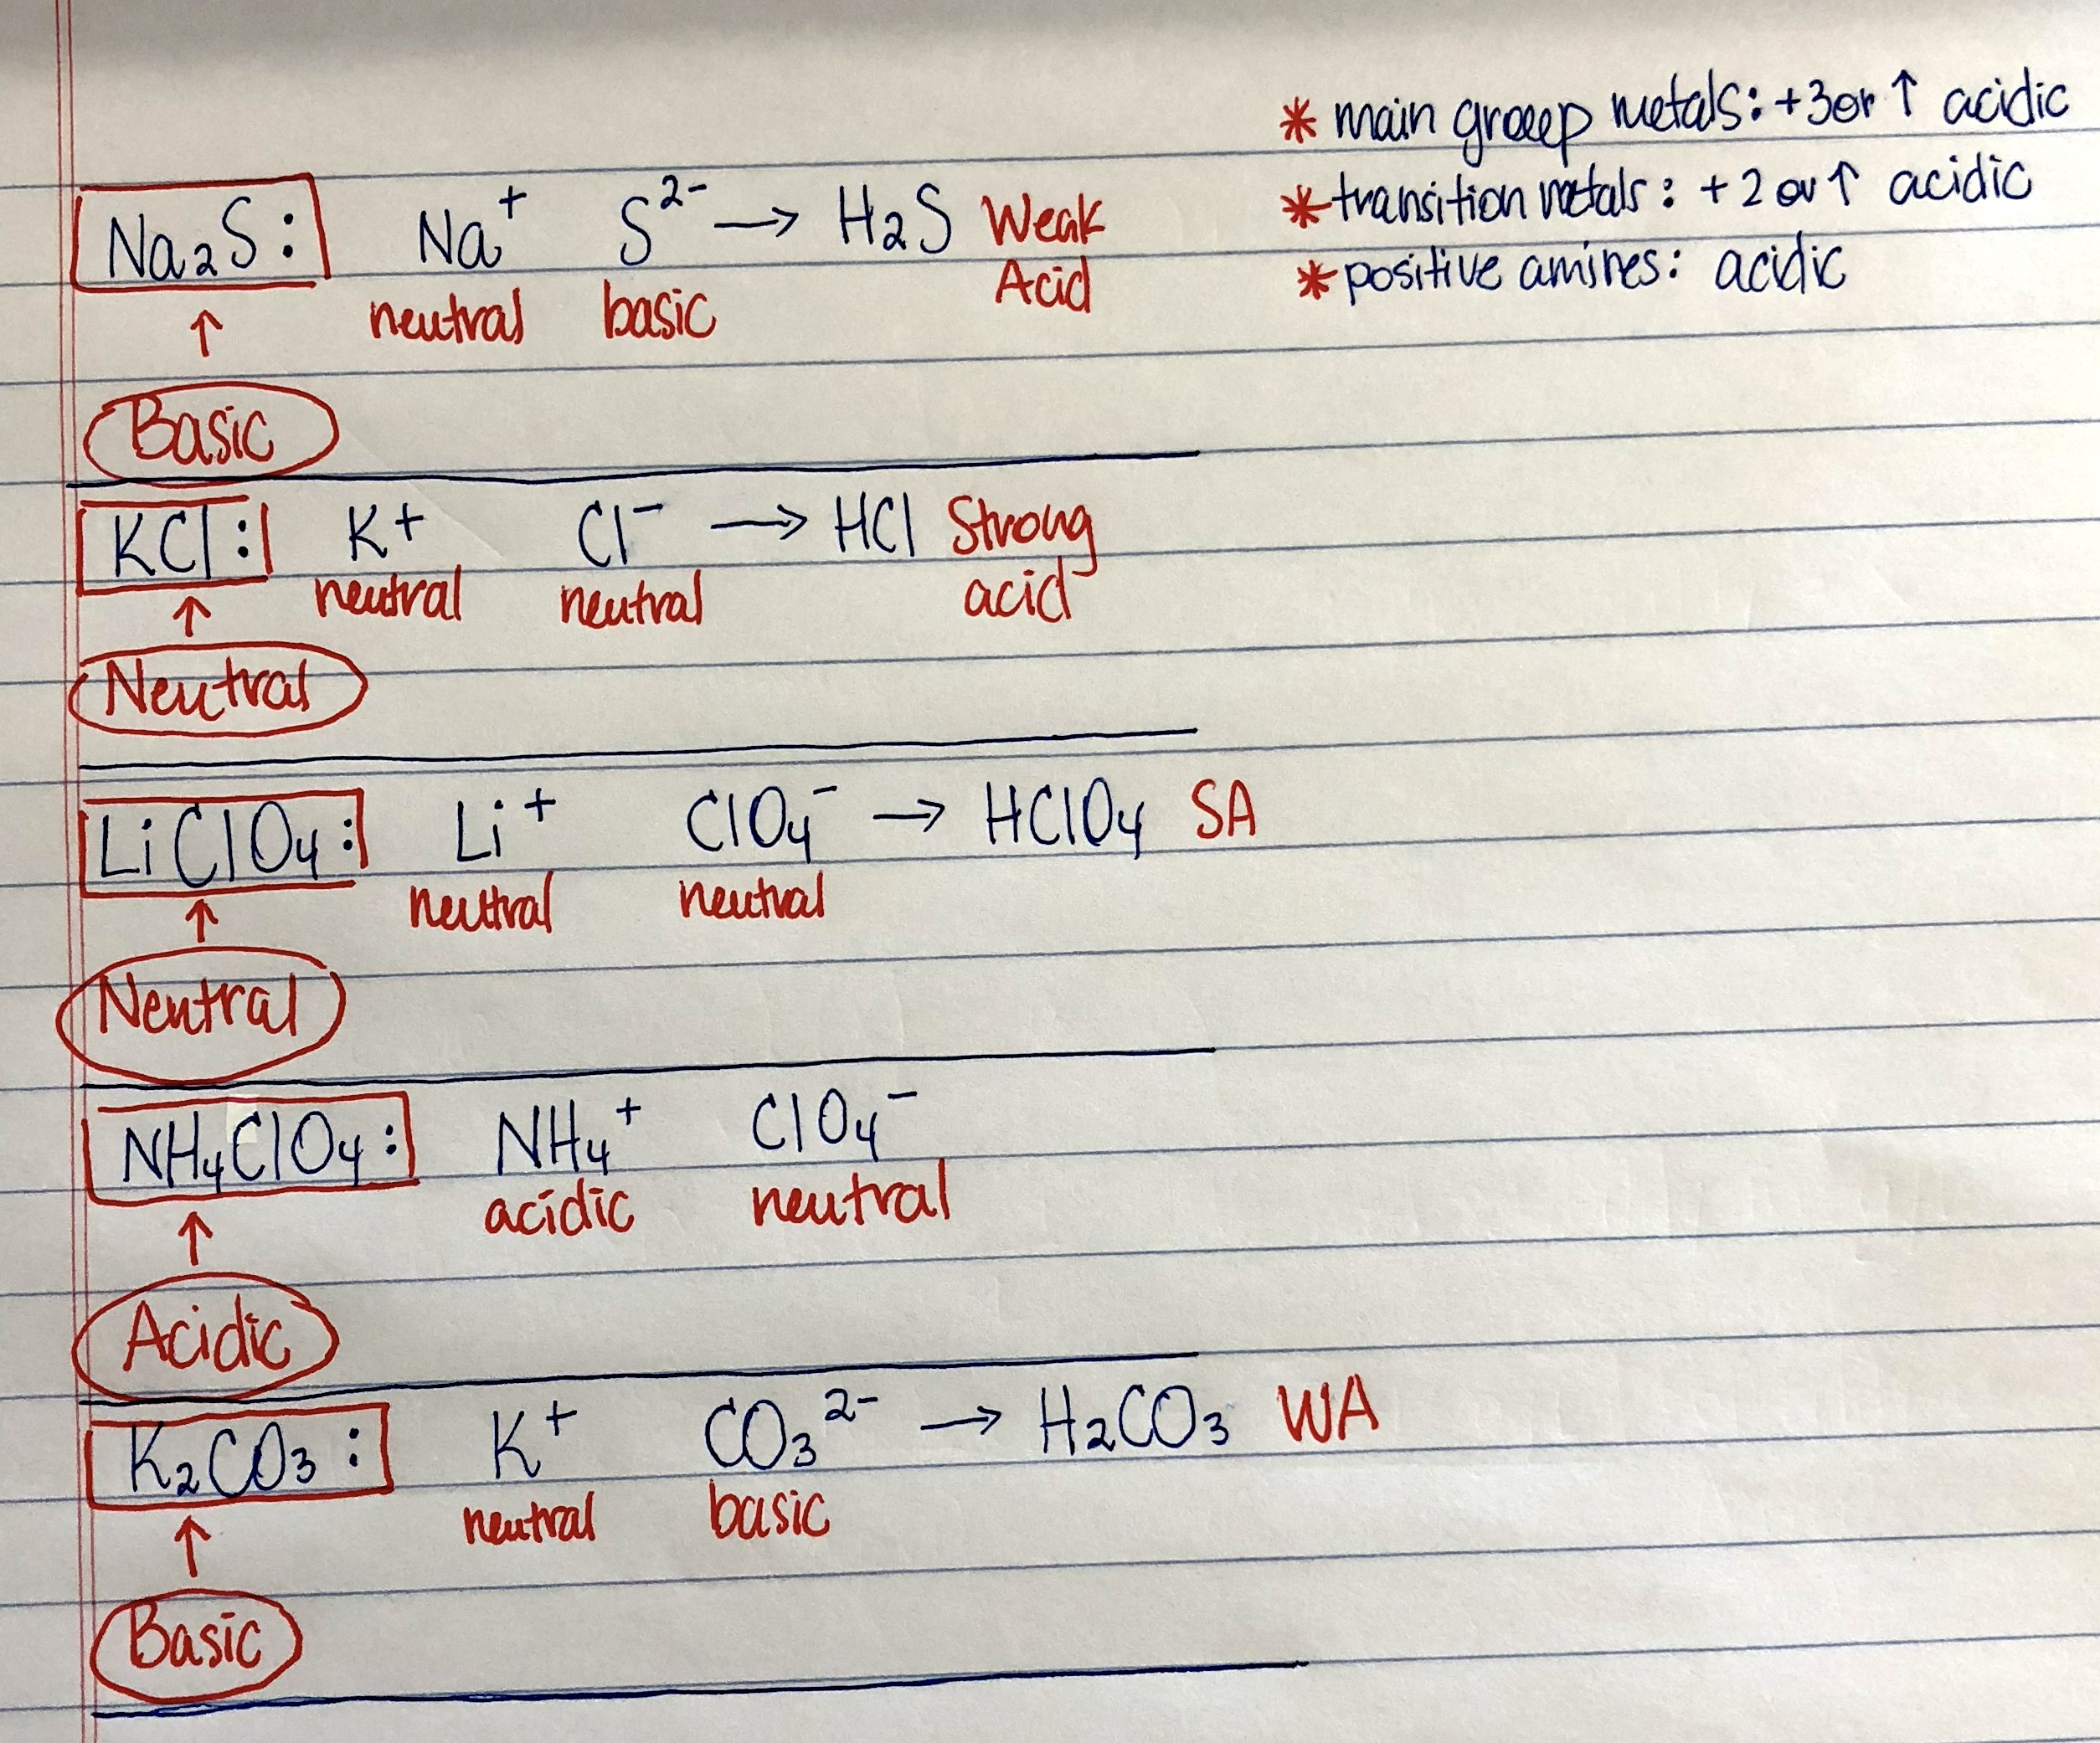 * main group metals: +3 or ↑ acidic
* transition metals: + 2 or ↑ acidic
* positive amines: acidic
Na₂S: Na⁺ S²⁻ → H₂S Weak
neutral basic Acid
↑
Basic
KCl: K⁺ Cl⁻ → HCl Strong
neutral neutral acid
↑
Neutral
LiClO₄: Li⁺ ClO₄⁻ → HClO₄ SA
neutral neutral
↑
Neutral
NH₄ClO₄: NH₄⁺ ClO₄⁻
acidic neutral
↑
Acidic
K₂CO₃: K⁺ CO₃²⁻ → H₂CO₃ WA
neutral basic
↑
Basic